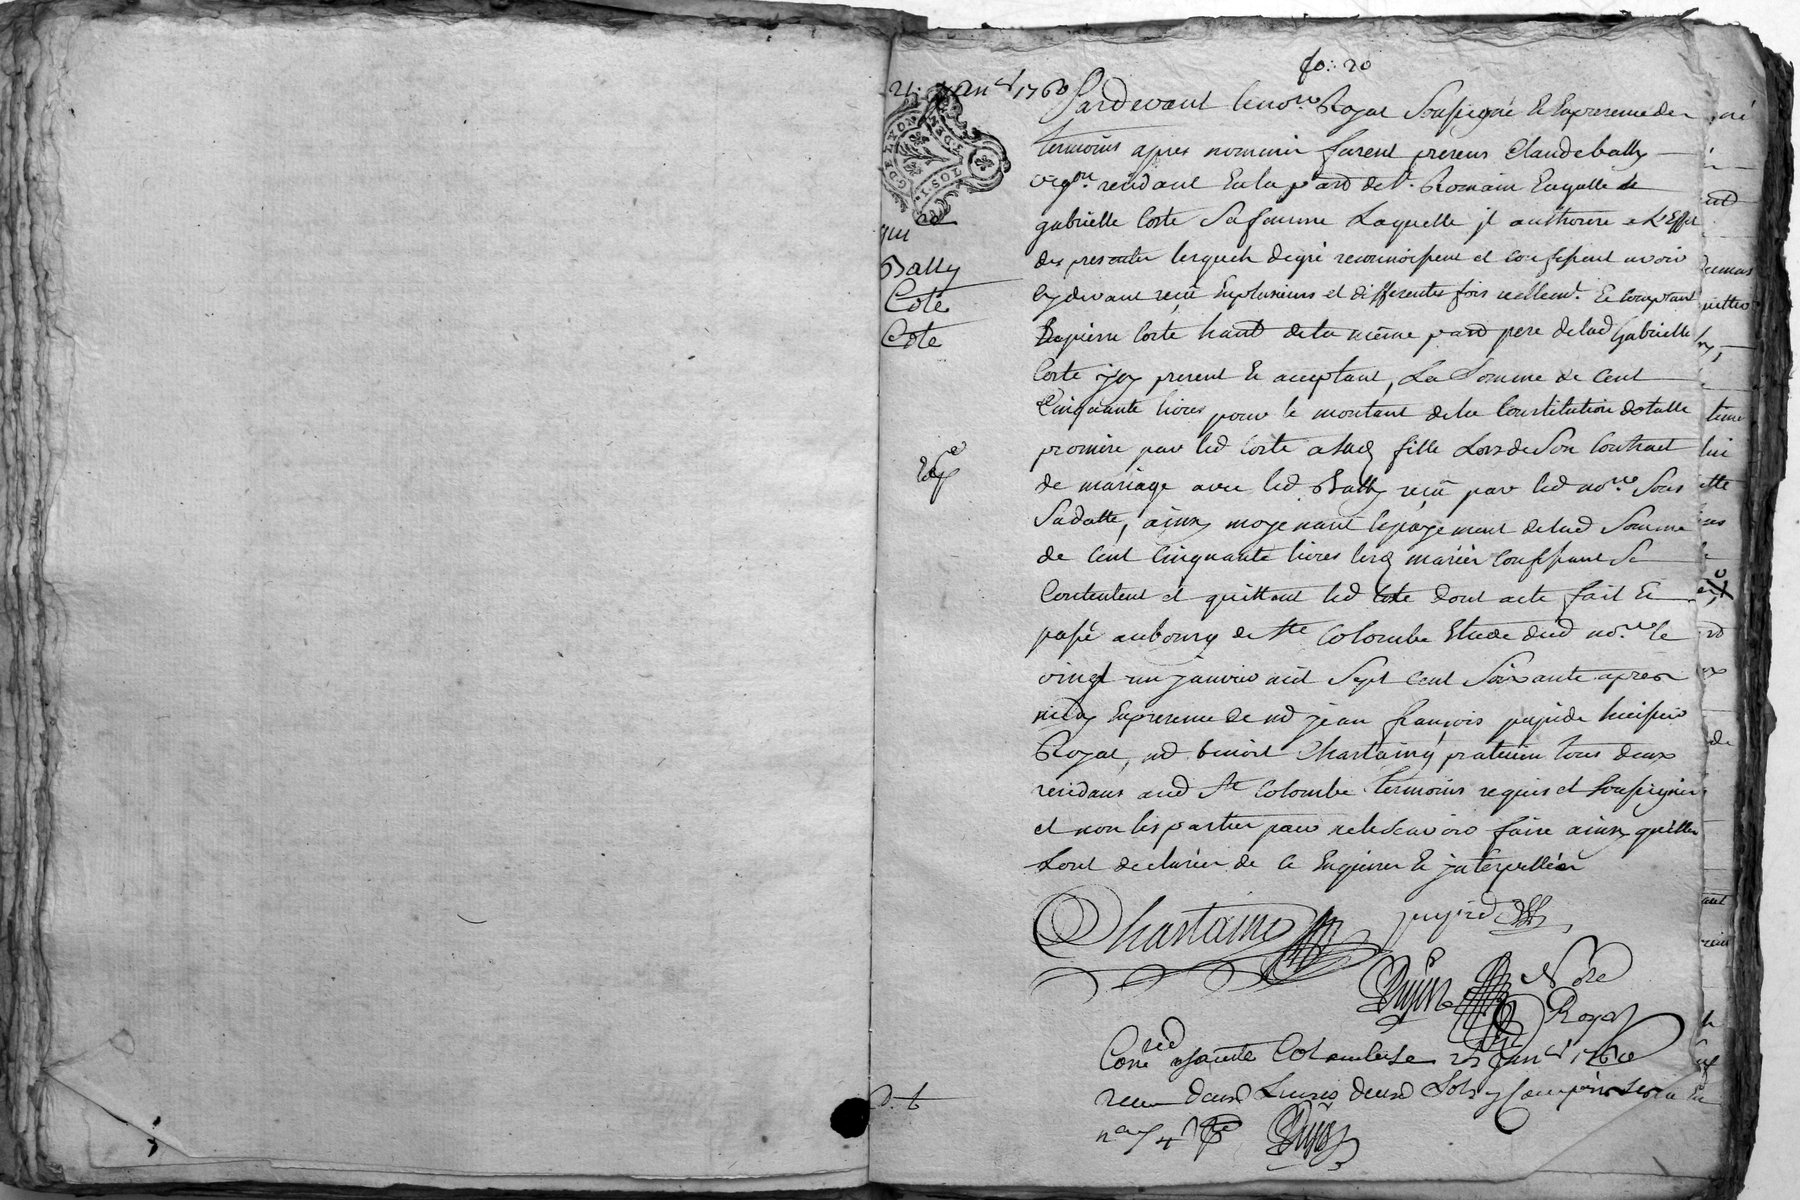 fo: 20
21 janer 1760
Pardevant le nore Royal Soussigné Et En presence des
temoins apres nommés furent presens Claude bally
vigon residant En la par de St Romain En galle Et
gabrielle Corte Sa femme Laquelle jl authorise a L'Effet
des presentes lesquels de gré reconnoissent et confessent avoir
cy devant reçû En plusieurs et differentes fois reellemt Et Comptant
De pierre Corte habt de la meme par pere de lad Gabrielle
Corte jcy present Et acceptant, La Somme de Cent
Cinquante livres pour le montant de la Constitution dotalle
promise par led Corte a sad fille Lors de Son Contract
de mariage avec led Bally reçû par led nore Sous
Sa datte, ainsy moyenant le payement de lad Somme
de Cent Cinquante livres lesd mariés confessent Se
Contentent et quittent led Cote dont acte fait Et
passé au bourg de Ste Colombe Etude dud nore le
vingt un janvier mil Sept Cent Soixante apres
midy En presence de md jean françois pupide huissier
Royal, md benoit Chastaing praticien tous deux
residans aud Ste Colombe temoins requis et Soussignés
et non les parties pour ne le Scavoir faire ainsy quelles
Lont declarés de ce Enquises Et jnterpellées
qui
Bally
Coté
Cote
Chastaing
Nore
Royal
Conred a Sainte Colombe 21 janer 1760
receu Deux Livres deux Sols